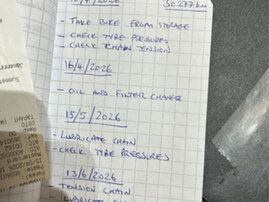 2026
30277km
- TAKE BIKE FROM STORAGE
- CHECK TYRE PRESSURES
- CHECK CHAIN TENSION
16/4/2026
- OIL AND FILTER CHANGE
15/5/2026
- LUBRICATE CHAIN
- CHECK TYRE PRESSURES
13/6/2026
- TENSION CHAIN
LUBRICATE CHAIN